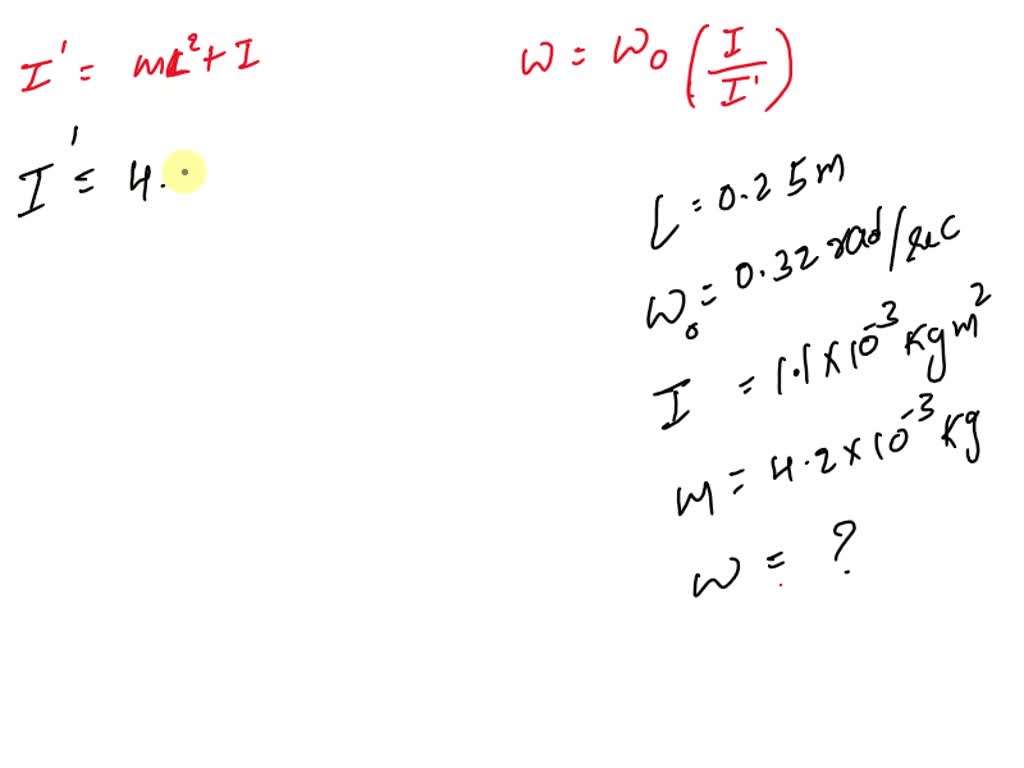 I' = mL² + I
ω = ω₀ (I/I')
I' = 4.
L = 0.25 m
ω₀ = 0.32 rad/sec
I = 1.1 × 10⁻³ kgm²
m = 4.2 × 10⁻³ kg
ω = ?